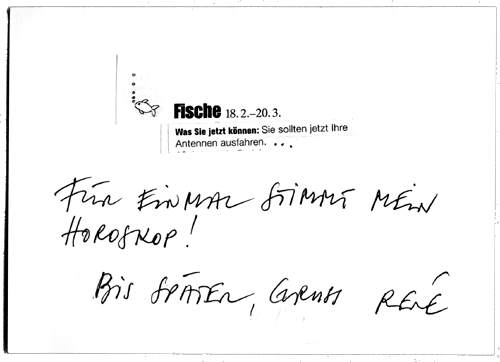 Fische 18.2.–20.3.
Was Sie jetzt können: Sie sollten jetzt Ihre
Antennen ausfahren. ...
FÜR EINMAL STIMMT MEIN
HOROSKOP!
BIS SPÄTER, GRUSS RENÉ